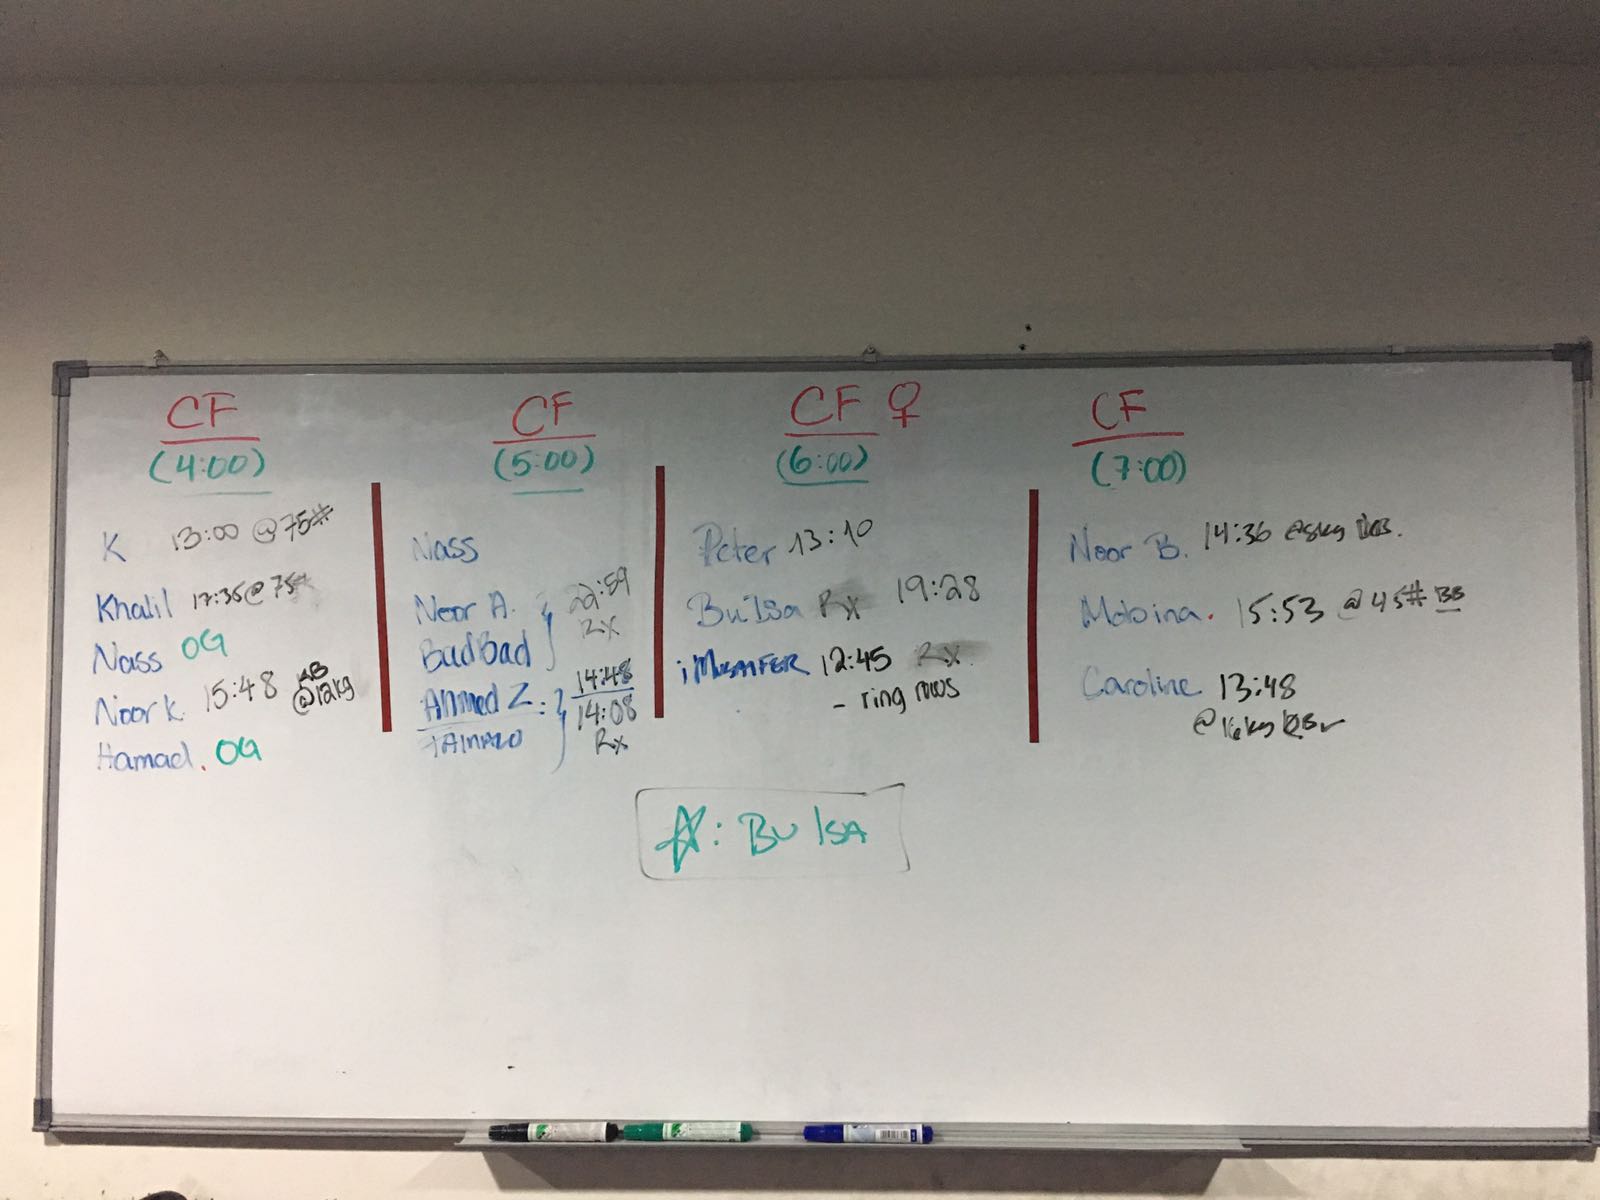 CF
(4:00)
K 13:00 @75#
Khalil 17:35@75#
Nass OG
Noor K. 15:48 @12kg
Hamad. OG
CF
(5:00)
Nass
Noor A. 22:59
BudBad Rx
Ahmed Z. 14:48
14:08
Rx
CF ♀
(6:00)
Peter 13:10
BuIsa Rx 19:28
12:45 Rx
- ring rows
CF
(7:00)
Noor B. 14:36 @8kg
Mobina. 15:53 @ 45# BB
Caroline 13:48
@16kg
☆: BU ISA